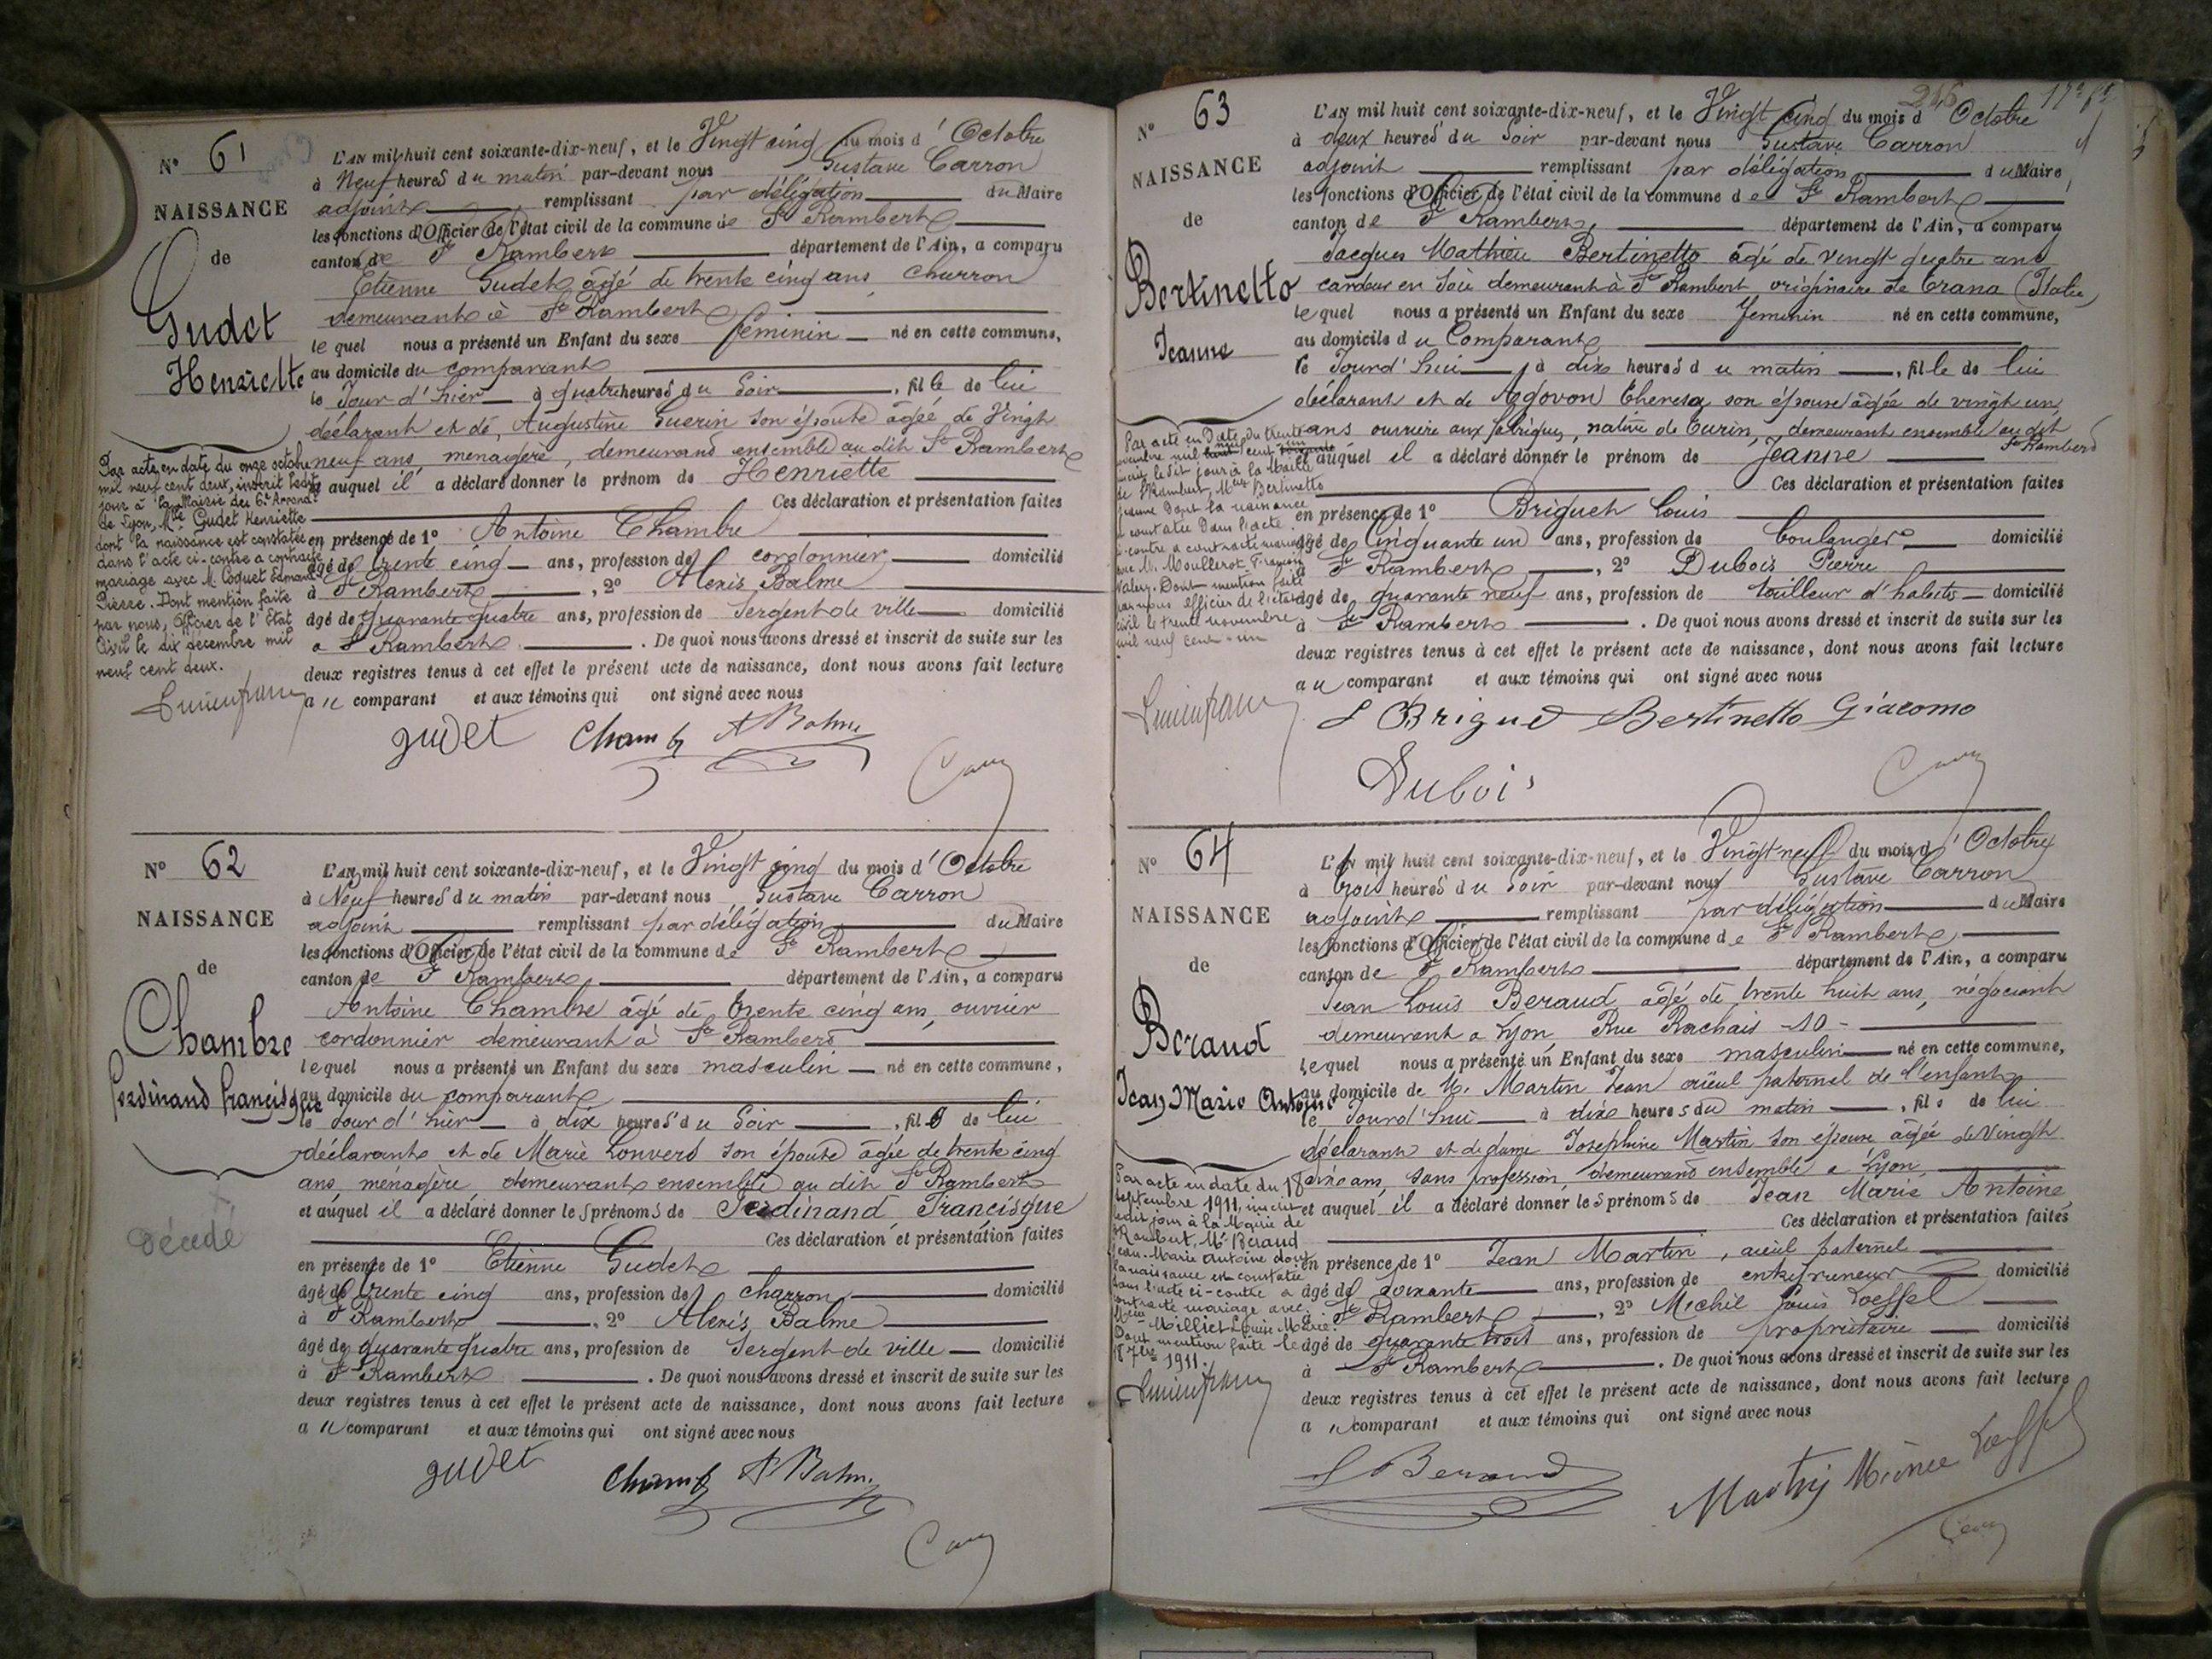 N° 61
NAISSANCE
de
Gudet
Henriette
L'AN mil huit cent soixante-dix-neuf, et le Vingt cinq du mois d'Octobre
à Neuf heures du matin par-devant nous Gustave Carron
adjoint remplissant par délégation du Maire
les fonctions d'Officier de l'état civil de la commune de St Rambert
canton de St Rambert département de l'Ain, a comparu
Etienne Gudet âgé de trente cinq ans, charron
demeurant à St Rambert
lequel nous a présenté un Enfant du sexe féminin né en cette commune,
au domicile du comparant
le Jour d'hier à quatre heures du Soir, fille de lui
déclarant et de Augustine Guerin son épouse âgée de Vingt
neuf ans, ménagère, demeurant ensemble au dit St Rambert
et auquel il a déclaré donner le prénom de Henriette
Ces déclaration et présentation faites
en présence de 1° Antoine Chambre
âgé de trente cinq ans, profession de cordonnier domicilié
à St Rambert, 2° Alexis Balme
âgé de quarante quatre ans, profession de Sergent de ville domicilié
à St Rambert. De quoi nous avons dressé et inscrit de suite sur les
deux registres tenus à cet effet le présent acte de naissance, dont nous avons fait lecture
au comparant et aux témoins qui ont signé avec nous
Par acte en date du onze octobre
mil neuf cent deux, inscrit ledit
jour à la Mairie du 6e Arrond.t
de Lyon, Mlle Gudet Henriette
dont la naissance est constatée
dans l'acte ci-contre a contracté
mariage avec M. Coquet Edmond
Pierre. Dont mention faite
par nous, Officier de l'Etat
Civil le dix décembre mil
neuf cent deux.
gudet Chamb A Balme
N° 62
NAISSANCE
de
Chambre
Ferdinand Francisque
décédé
L'AN mil huit cent soixante-dix-neuf, et le Vingt cinq du mois d'Octobre
à Neuf heures du matin par-devant nous Gustave Carron
adjoint remplissant par délégation du Maire
les fonctions d'Officier de l'état civil de la commune de St Rambert
canton de St Rambert département de l'Ain, a comparu
Antoine Chambre âgé de trente cinq ans, ouvrier
cordonnier demeurant à St Rambert
lequel nous a présenté un Enfant du sexe masculin né en cette commune,
au domicile du comparant
le Jour d'hier à dix heures du Soir, fils de lui
déclarant et de Marie Louvers son épouse âgée de trente cinq
ans ménagère demeurant ensemble au dit St Rambert
et auquel il a déclaré donner les prénoms de Ferdinand Francisque
Ces déclaration et présentation faites
en présence de 1° Etienne Gudet
âgé de trente cinq ans, profession de charron domicilié
à St Rambert, 2° Alexis Balme
âgé de quarante quatre ans, profession de Sergent de ville domicilié
à St Rambert. De quoi nous avons dressé et inscrit de suite sur les
deux registres tenus à cet effet le présent acte de naissance, dont nous avons fait lecture
au comparant et aux témoins qui ont signé avec nous
gudet Chamb A Balme
246
N° 63
NAISSANCE
de
Bertinetto
Jeanne
L'AN mil huit cent soixante-dix-neuf, et le Vingt Cinq du mois d Octobre
à deux heures du Soir par-devant nous Gustave Carron
adjoint remplissant par délégation du Maire
les fonctions d'Officier de l'état civil de la commune de St Rambert
canton de St Rambert, département de l'Ain, a comparu
Jacques Mathieu Bertinetto âgé de vingt quatre ans
cardeur en Soie demeurant à St Rambert originaire de Trana (Italie)
lequel nous a présenté un Enfant du sexe feminin né en cette commune,
au domicile du Comparant
le Jourd'hui à dix heures du matin, fille de lui
déclarant et de Agovon Theresa son épouse âgée de vingt un
ans ouvrière aux fabriques, native de Turin, demeurant ensemble au dit
St Rambert
et auquel il a déclaré donner le prénom de Jeanne
Ces déclaration et présentation faites
en présence de 1° Briguet Louis
âgé de Cinquante un ans, profession de boulanger domicilié
à St Rambert, 2° Dubois Pierre
âgé de quarante neuf ans, profession de tailleur d'habits domicilié
à St Rambert. De quoi nous avons dressé et inscrit de suite sur les
deux registres tenus à cet effet le présent acte de naissance, dont nous avons fait lecture
au comparant et aux témoins qui ont signé avec nous
Par acte en Date du trente
novembre mil neuf cent un
inscrit le dit jour à la Mairie
de St Rambert, Mlle Bertinetto
Jeanne Dont la naissance
est constatée Dans l'acte
ci-contre a contracté mariage
avec M. Moullerot François
Valery. Dont mention faite
par nous officier de l'état
civil le trente novembre
mil neuf cent un
L Briguet Bertinetto Giacomo
Dubois
N° 64
NAISSANCE
de
Beraud
Jean Marie Antoine
L'AN mil huit cent soixante-dix-neuf, et le Vingt neuf du mois d'Octobre
à trois heures du Soir par-devant nous Gustave Carron
adjoint remplissant par délégation du Maire
les fonctions d'Officier de l'état civil de la commune de St Rambert
canton de St Rambert département de l'Ain, a comparu
Jean Louis Beraud âgé de trente huit ans, négociant
demeurant a Lyon, Rue Rachais -10-
lequel nous a présenté un Enfant du sexe masculin né en cette commune,
au domicile de M. Martin Jean aïeul paternel de l'enfant
le Jourd'hui à dix heures du matin, fils de lui
déclarant et de dame Josephine Martin son épouse âgée de Vingt
ans, sans profession, demeurant ensemble a Lyon,
et auquel il a déclaré donner les prénoms de Jean Marie Antoine
Ces déclaration et présentation faites
en présence de 1° Jean Martin, aïeul paternel
âgé de soixante ans, profession de entrepreneur domicilié
à St Rambert, 2° Michel Louis Loeffel
âgé de quarante trois ans, profession de propriétaire domicilié
à St Rambert. De quoi nous avons dressé et inscrit de suite sur les
deux registres tenus à cet effet le présent acte de naissance, dont nous avons fait lecture
au comparant et aux témoins qui ont signé avec nous
Par acte en date du 18
septembre 1911, inscrit
ledit jour à la Mairie de
St Rambert, Mr Béraud
Jean-Marie Antoine dont
la naissance est constatée
dans l'acte ci-contre a
contracté mariage avec
Melle Milliet Louise Marie.
Dont mention faite le
18 7bre 1911.
L Beraud Loeffel